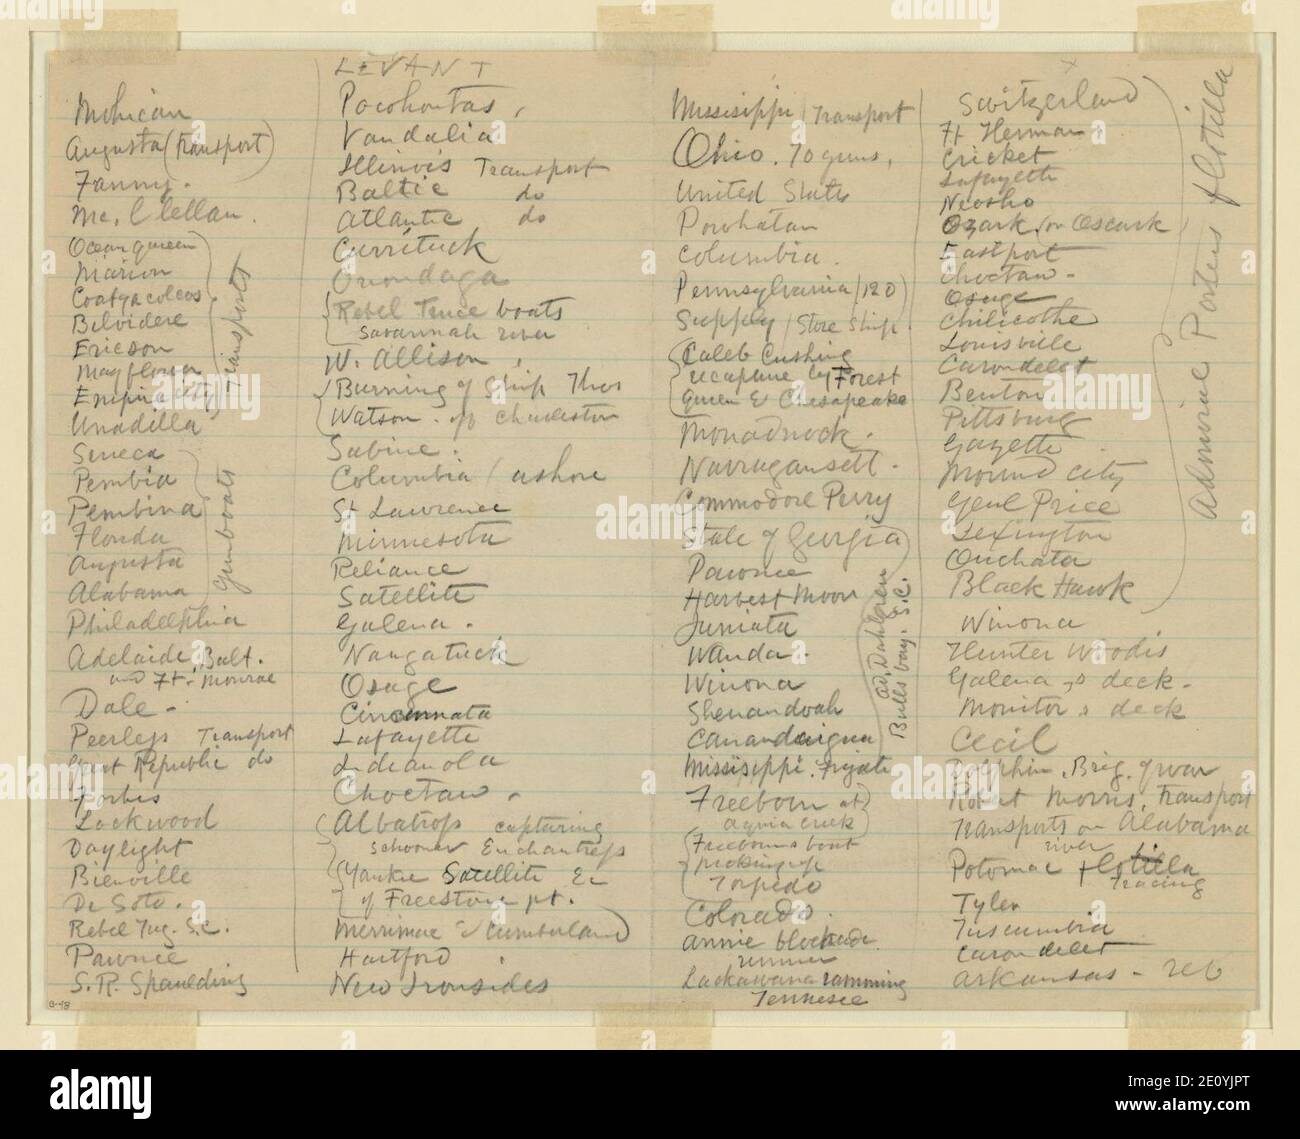 Mohican
Augusta (Transport)
Fanny.
Mc.Clellan.
Ocean queen
Marion
Coatzacolcos
Belvidere
Ericson
Mayflower
Empire city
Transports
Unadilla
Seneca
Pembia
Pembina
Florida
Augusta
Alabama
Gunboats
Philadelphia
Adelaide, Balt.
and Ft. Monroe
Dale -
Peerless Transport
Great Republic do
Forbes
Lockwood
Daylight
Bienville
De Soto.
Rebel Tug. S.C.
Pawnee
S.R. Spaulding
B-48
LEVANT
Pocohontas,
Vandalia
Illinois Transport
Baltic do
Atlantic do
Currituck
Onondaga
Rebel Truce boats
Savannah river
W. Allison,
Burning of Ship Thos
Watson. off Charleston
Sabine.
Columbia / ashore
St Lawrence
Minnesota
Reliance
Satellite
Galena.
Naugatuck
Osage
Cincinnata
Lafayette
Indeanola
Choctaw.
Albatross capturing
schooner Enchantress
Yankee Satellite Ec
of Freestone pt.
Merrimac & Cumberland
Hartford.
New Ironsides
Mississippi / Transport
Ohio. 70 guns,
United States
Powhatan
Columbia.
Pennsylvania (120)
Supply / Store Ship.
Caleb Cushing
recapture by Forest
Queen & Chesapeake
Monadnock.
Narragansett.
Commodore Perry
State of Georgia
Pawnee
Harvest Moon
Juniata
Wanda.
Winona
Shenandoah
Canandaigua
ad. Dahlgren
Bulls bay. S.C.
Mississippi. Frigate
Freeborn at
aquia creek
Freeborns boat
picking up
Torpedo
Colorado.
Annie blockade
runner
Lackawana ramming
Tennesee
x
Switzerland
Ft Herman.
Cricket
Lafayette
Neosho
Ozark / or Oscark
Eastport
Choctaw -
Osage
Chilicothe
Louisville
Carondelet
Benton
Pittsburg
Gazette
Mound city
Genl Price
Lexington
Ouchata
Black Hawk
Admiral Porters flotilla
Winona
Hunter Woodis
Galena,s deck.
Monitor,s deck
Cecil
Dolphin. Brig. of war
Robert Morris, Transport
Transports on Alabama
river
Potomac flotilla
Tracing
Tyler
Tuscumbia
Carondelet
Arkansas - reb
alamy
Image ID: 2E0YJPT
www.alamy.com